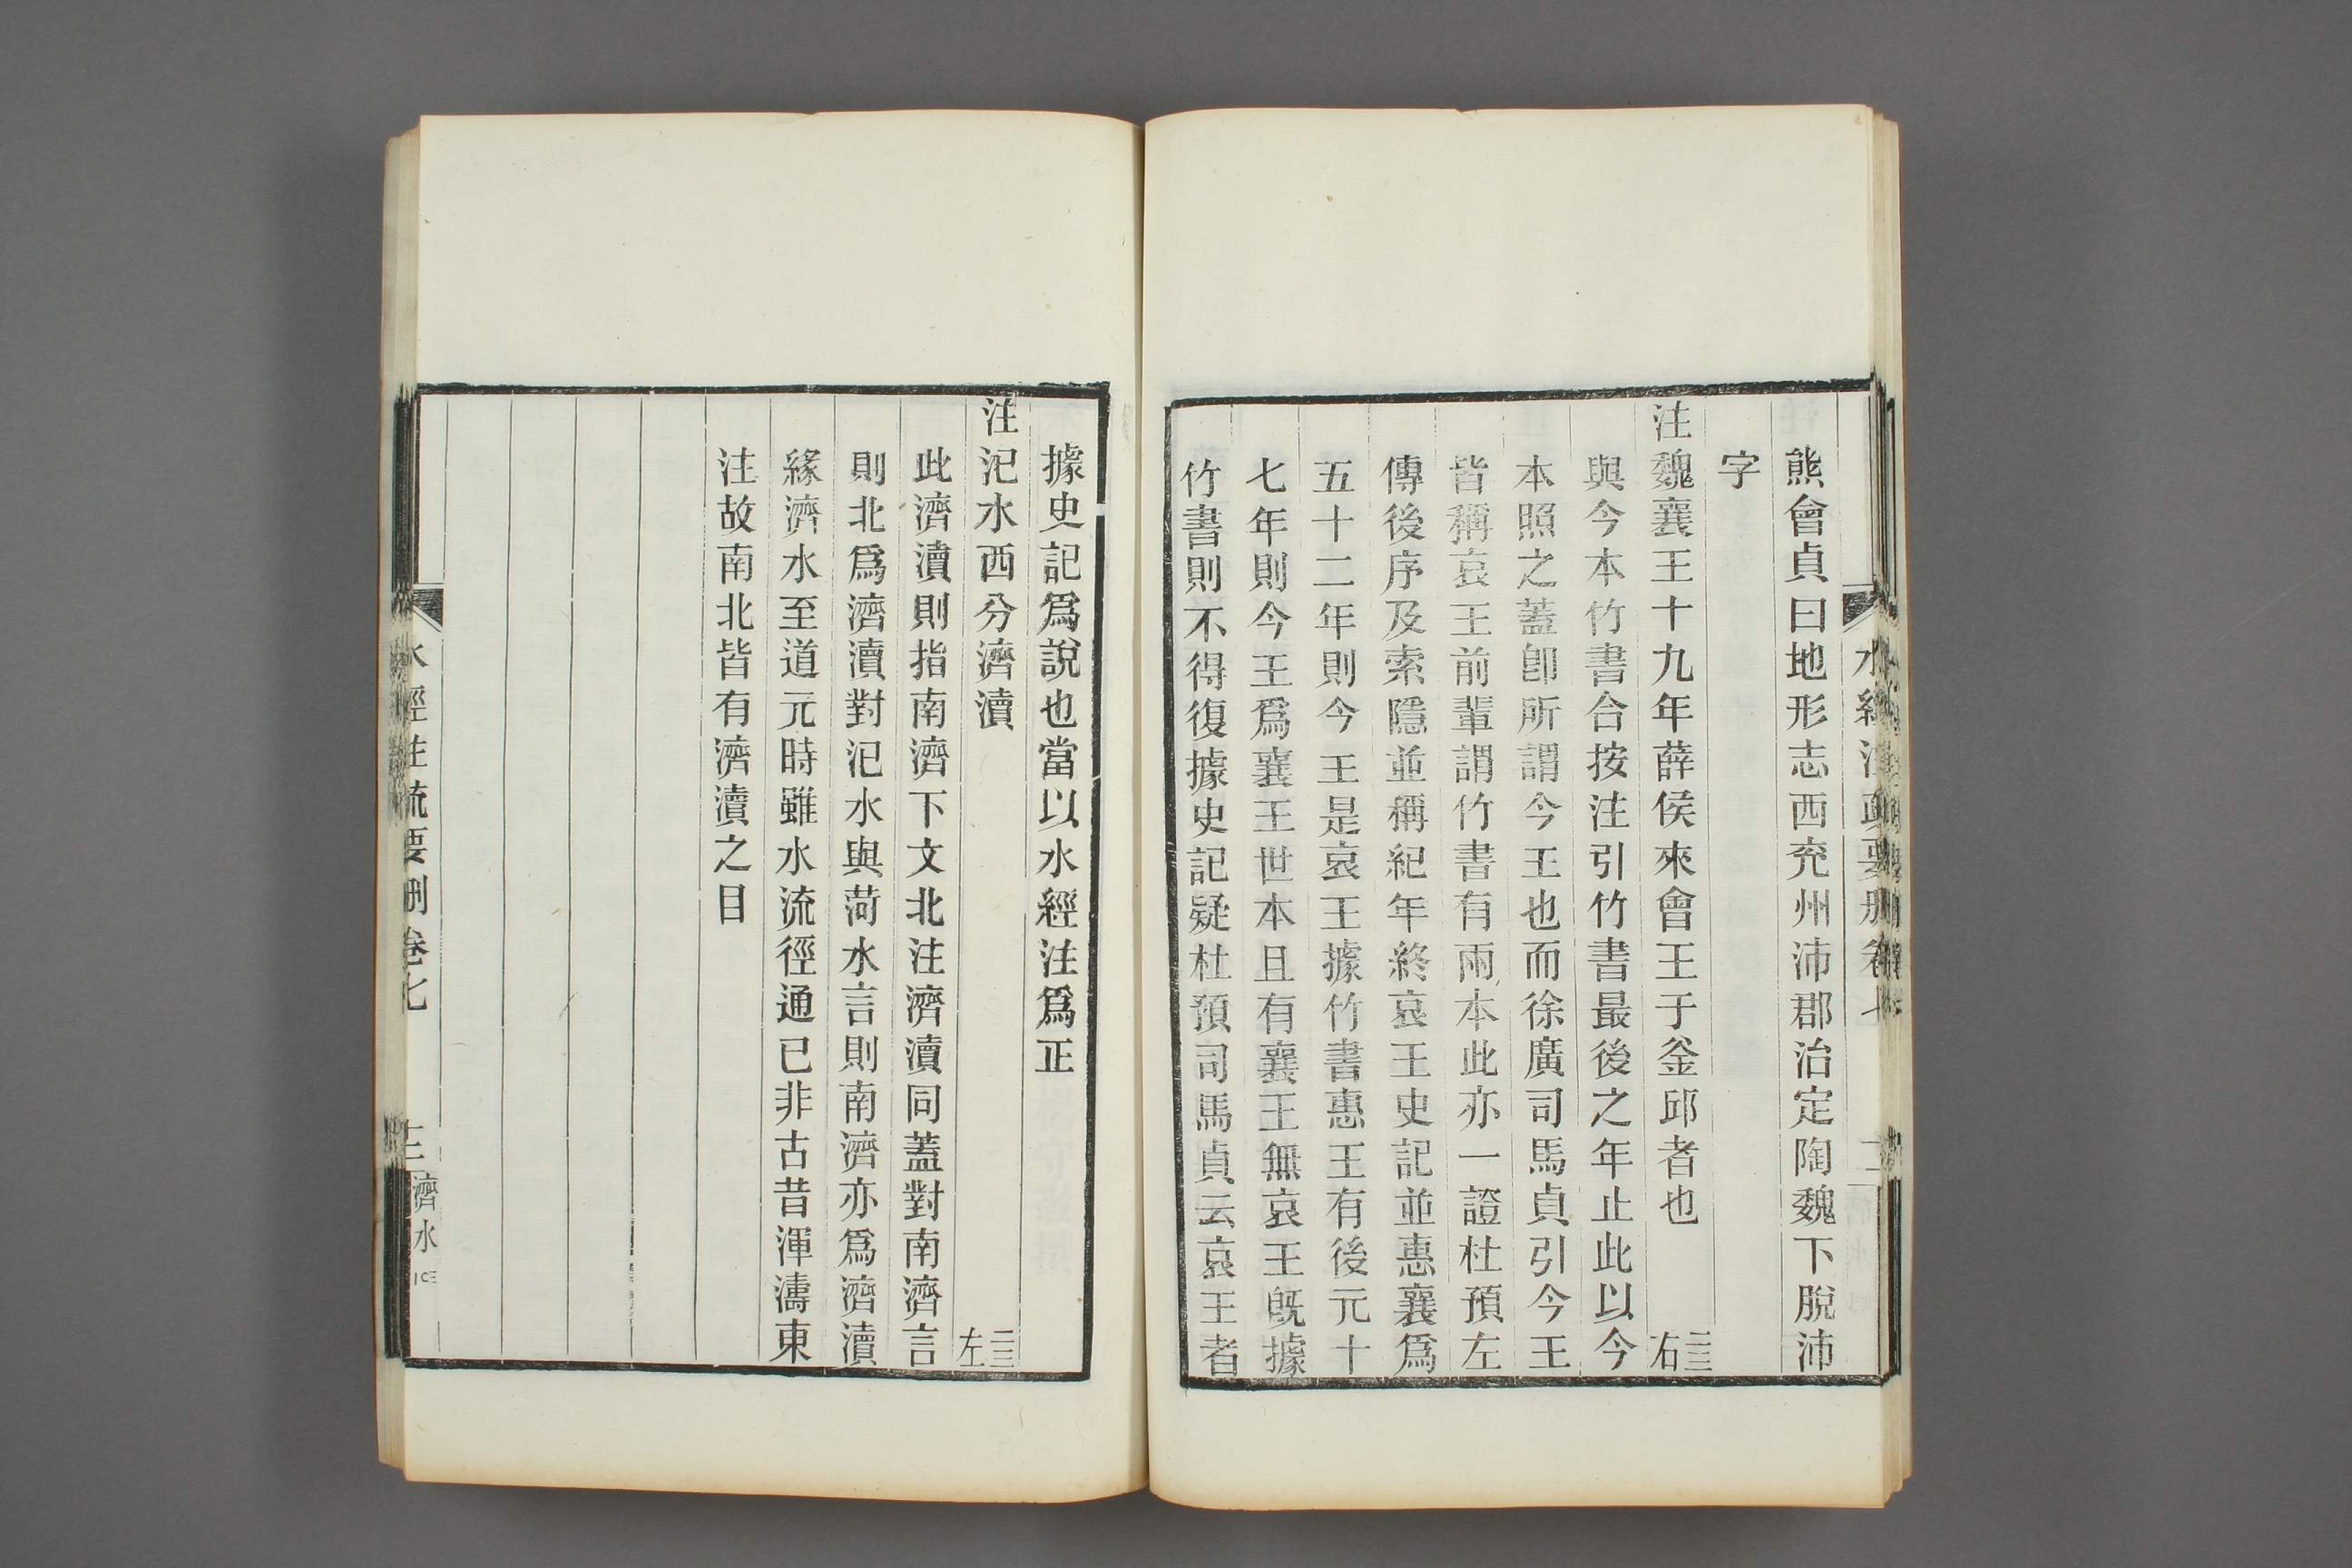 熊會貞曰地形志西兖州沛郡治定陶魏下脫沛
字
注魏襄王十九年薛侯來會王于釜邱者也 三三右
與今本竹書合按注引竹書最後之年止此以今
本照之蓋卽所謂今王也而徐廣司馬貞引今王
皆稱哀王前輩謂竹書有兩本此亦一證杜預左
傳後序及索隱並稱紀年終哀王史記並惠襄爲
五十二年則今王是哀王據竹書惠王有後元十
七年則今王爲襄王世本且有襄王無哀王旣據
竹書則不得復據史記疑杜預司馬貞云哀王者
據史記爲說也當以水經注爲正
注汜水西分濟瀆 三三左
此濟瀆則指南濟下文北注濟瀆同蓋對南濟言
則北爲濟瀆對汜水與菏水言則南濟亦爲濟瀆
緣濟水至道元時雖水流徑通已非古昔渾濤東
注故南北皆有濟瀆之目
水經注疏要刪卷七 三 濟水